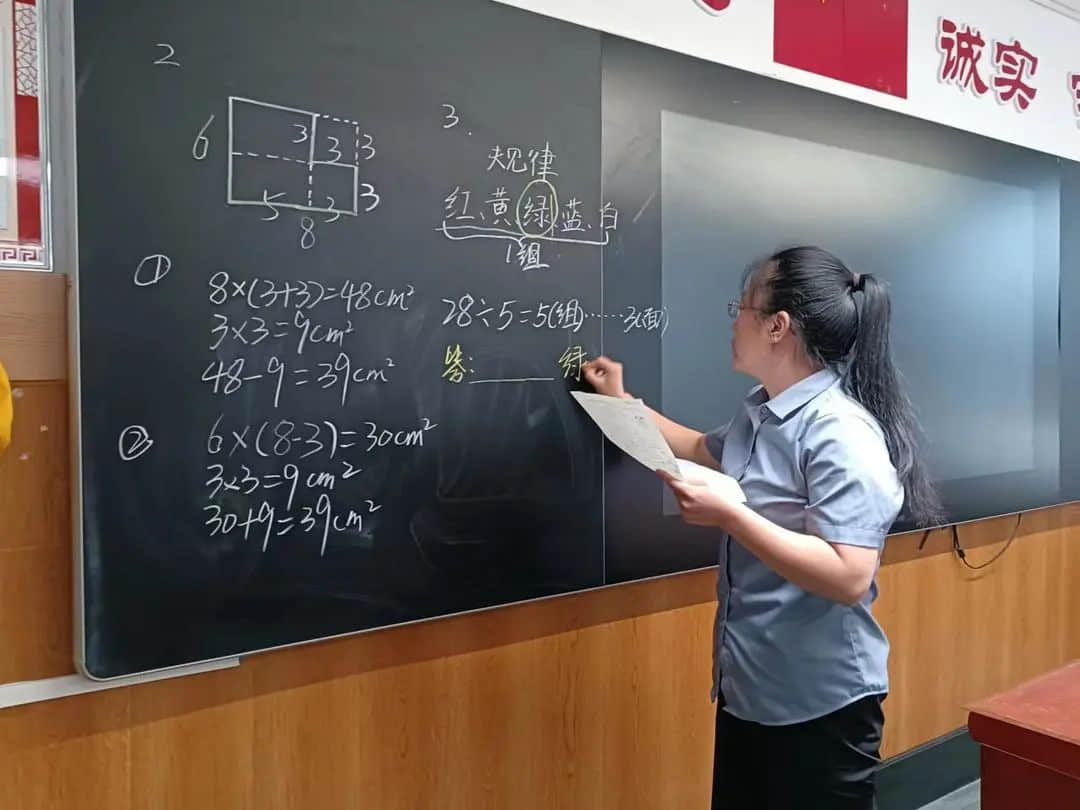 诚实
2
6
3
3
3
5
3
3
8
①
8×(3+3)=48cm²
3×3=9cm²
48-9=39cm²
②
6×(8-3)=30cm²
3×3=9cm²
30+9=39cm²
3.
规律
红、黄、绿、蓝、白
1组
28÷5=5(组)……3(面)
答:______绿